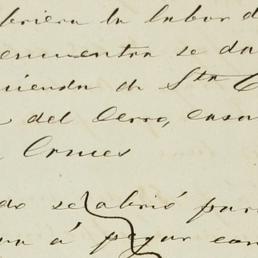 la labor d
encuentra se da
uienda de Sta C
del Cerro, casa
Cruces
do se abrió par
á pagar con